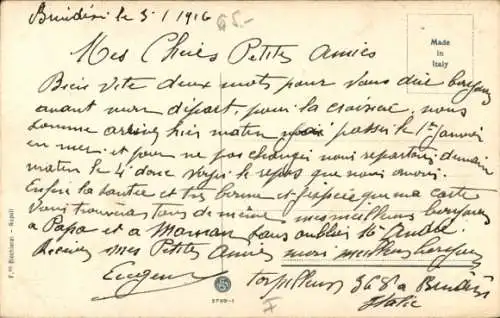 Brindisi le 3/1/1916
65.-
Made
in
Italy
Mes Chères Petites Amies
Bien vite deux mots pour vous dire bonjour
avant mon départ, pour la croisière, nous
somme arrivés hier matin passé le 1er Janvier
en mer. et pour ne pas changer nous repartons demain
matin le 4 donc le repos que nous
Enfin la santée et très bonne et j'espère que ma carte
Vous trouvera tous de même mes meilleurs bonjours
a Papa et a Maman sans oublier André.
Recevez mes Petites Amies mes meilleurs bonjours
Eugène
torpilleur 368 a Brindisi
Italie
2799-1